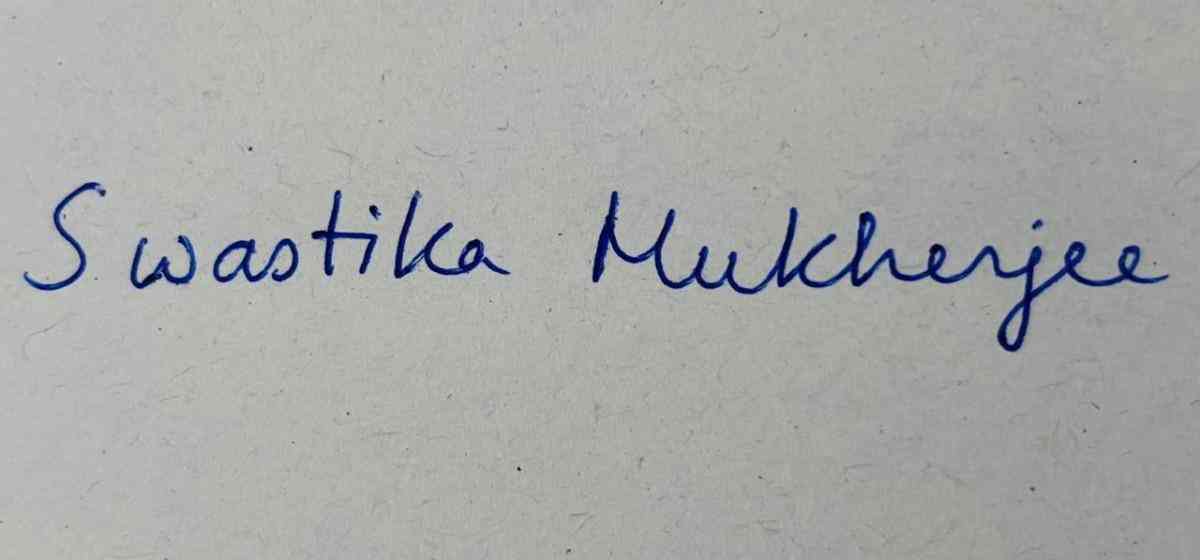 Swastika Mukherjee